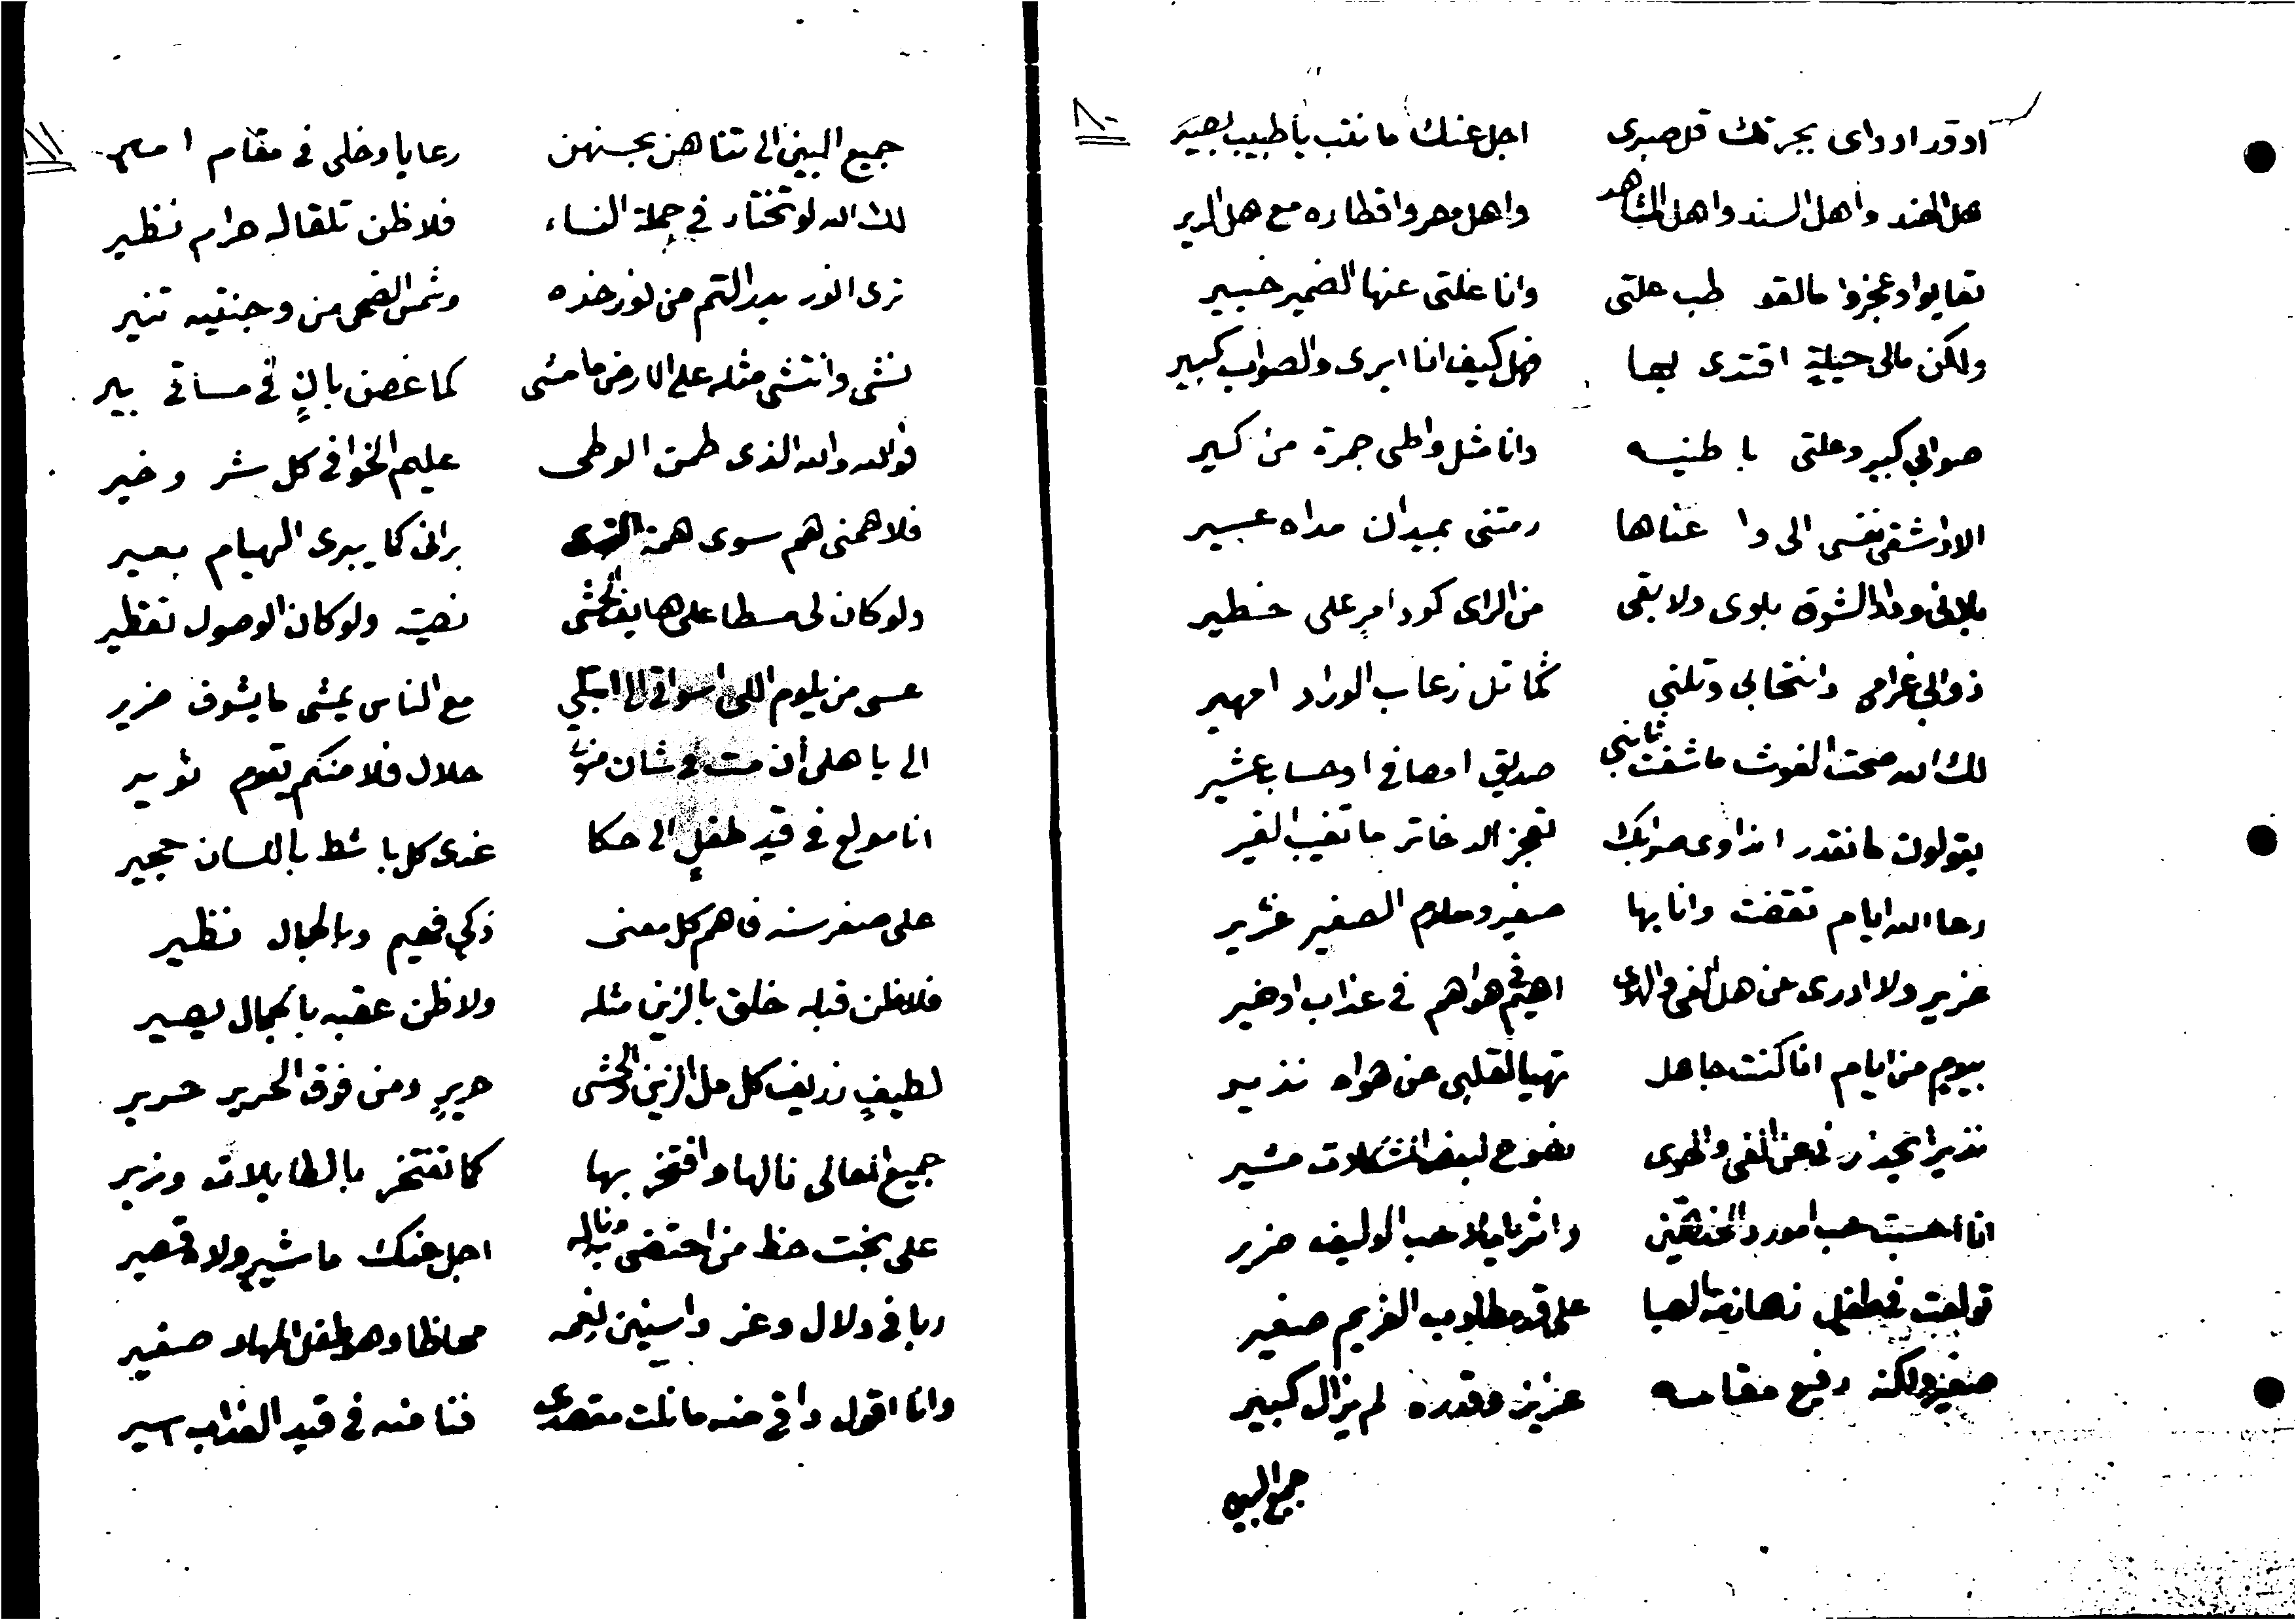 ٨٠
اد قدر اد داى بجرتك قل صبرى اجل عنك ما نتب يا طبيب بصير
هل الهند واهل السند واهل الشاهد واهل مصر واقطاره مع هل الدير
تعايوا وعجزوا مالقو طب علتى وانا علتى عنها الضمير خبير
ولكن مالى حيلة اقتدى بها فهل كيف انا ابرى والصواب كبير
صوابي كبير وعلتى باطنيه وانا مثل واطى جمرة من كير
الا واشقى نفسى الى وا عناها رمتنى بميدان مداه عسير
بلانى وداد الشوق بلوى ولا بقى من الراى كود امرٍ على خطير
ذوابي غرامى وانتحابى وتلني كما تل زعاب الوراد امهير
لك الله صحت الغوث ما شفت ثابني صديق امصافى او حساب عشير
يقولون ما نقدر انداوى صوابك تعجز الدخاتر ما تغيب الغير
رعا الله ايام تقضت وانا بها صغير وحلام الصغير غرير
غرير ولا ادرى عن هل الغى والهوى اهيم في هواهم في عذاب او خير
بيومٍ من ايام انا كنت جاهل تهيا لقلبى عن هواه نذير
نذير ايحذرنى عن الغى والهوى نصوح لبعض المشكلات مشير
انا احسبت حب امورد الخد هين واثر يا ملا حب الوليف ضرير
تولعت في طفلٍ زها زينة الصبا على قد مطلوب الغريم صغير
صغير ولكنه رفيع مقامه عزيز وقدره لم يزال كبير
جميع البيض
٨١
جميع البيض الى تناهن بحسنهن رعايا وخلى في مقام امير
لك الله لو تختار في جملة النساء فلا ظن تلقا له حرام نظير
ترى النور بدر التم من نور خده وشمس الضحى من وجنتيه تنير
نشى وانتشى مثله على الارض ما مشى كما غصن بانٍ في مساقى بير
فوالله والله الذى طمن الوطى عليم الخوافى كل شر وخير
فلا همنى هم سوى همة برانى كما يبرى الهيام بعير
ولو كان لى سطا على هايف الحشى نصيته ولو كان الوصول تغطير
عسى من يلوم اللى اسواتى الا ابتلي مع الناس يمشى ما يشوف ضرير
الى يا هلى أن مت في شان منوتى حلال فلا منكم يقوم ثوير
انا مولع في قيد طفلٍ الى حكا غدى كل باشط باللسان حجير
على صغر سنه فاهم كل معنى ذكي فهيم وبالجمال نظير
فلا ظن قبله خلق بالزين مثله ولا ظن عقبه بالجمال يصير
لطيفٍ زريف كل حل الزين والحشى حريرٍ ومن فوق الحرير حرير
جميع المعالى نالها وافتخر بها كما تفتخر بالطايلات وزير
على بخت حظ من احتضى به وناله اجل عنك ما شيرٍ ولا قصير
ربا في دلال وعز واسنين نعمه محاظا وهو طفل المهاد صغير
وانا اقول واقى منه ما نلت مقصدى فنا منه في قيد العذاب اسير